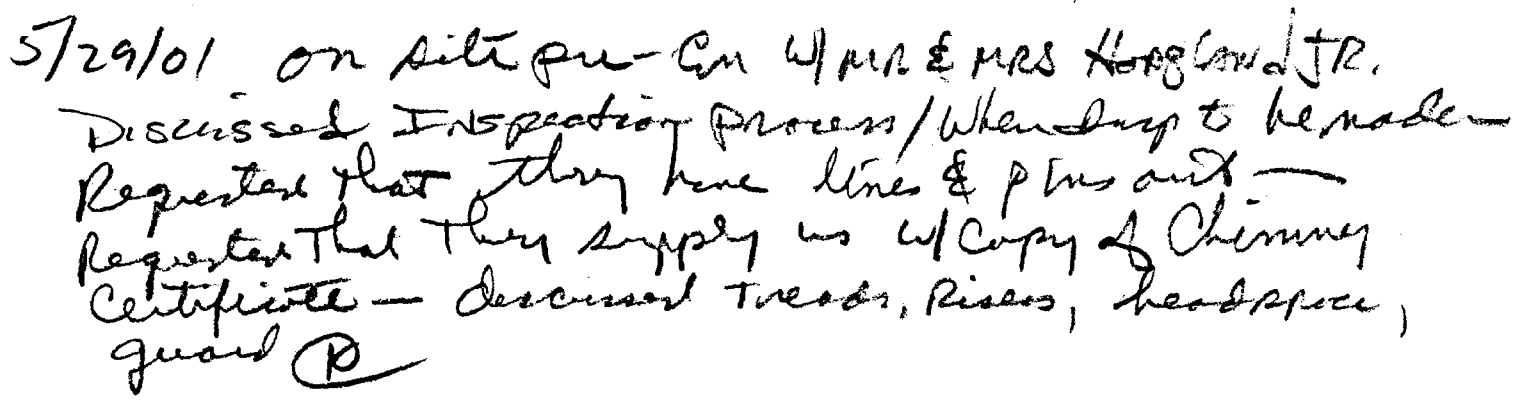 5/29/01 on site pre-Con w/ MR & MRS Hoagland JR.
Discussed Inspection Process/When Insp to be made—
Requested that they have lines & pins out —
Requested That They supply us w/ Copy of Chimney
Certificate — discussed Treads, Risers, headspace,
guard